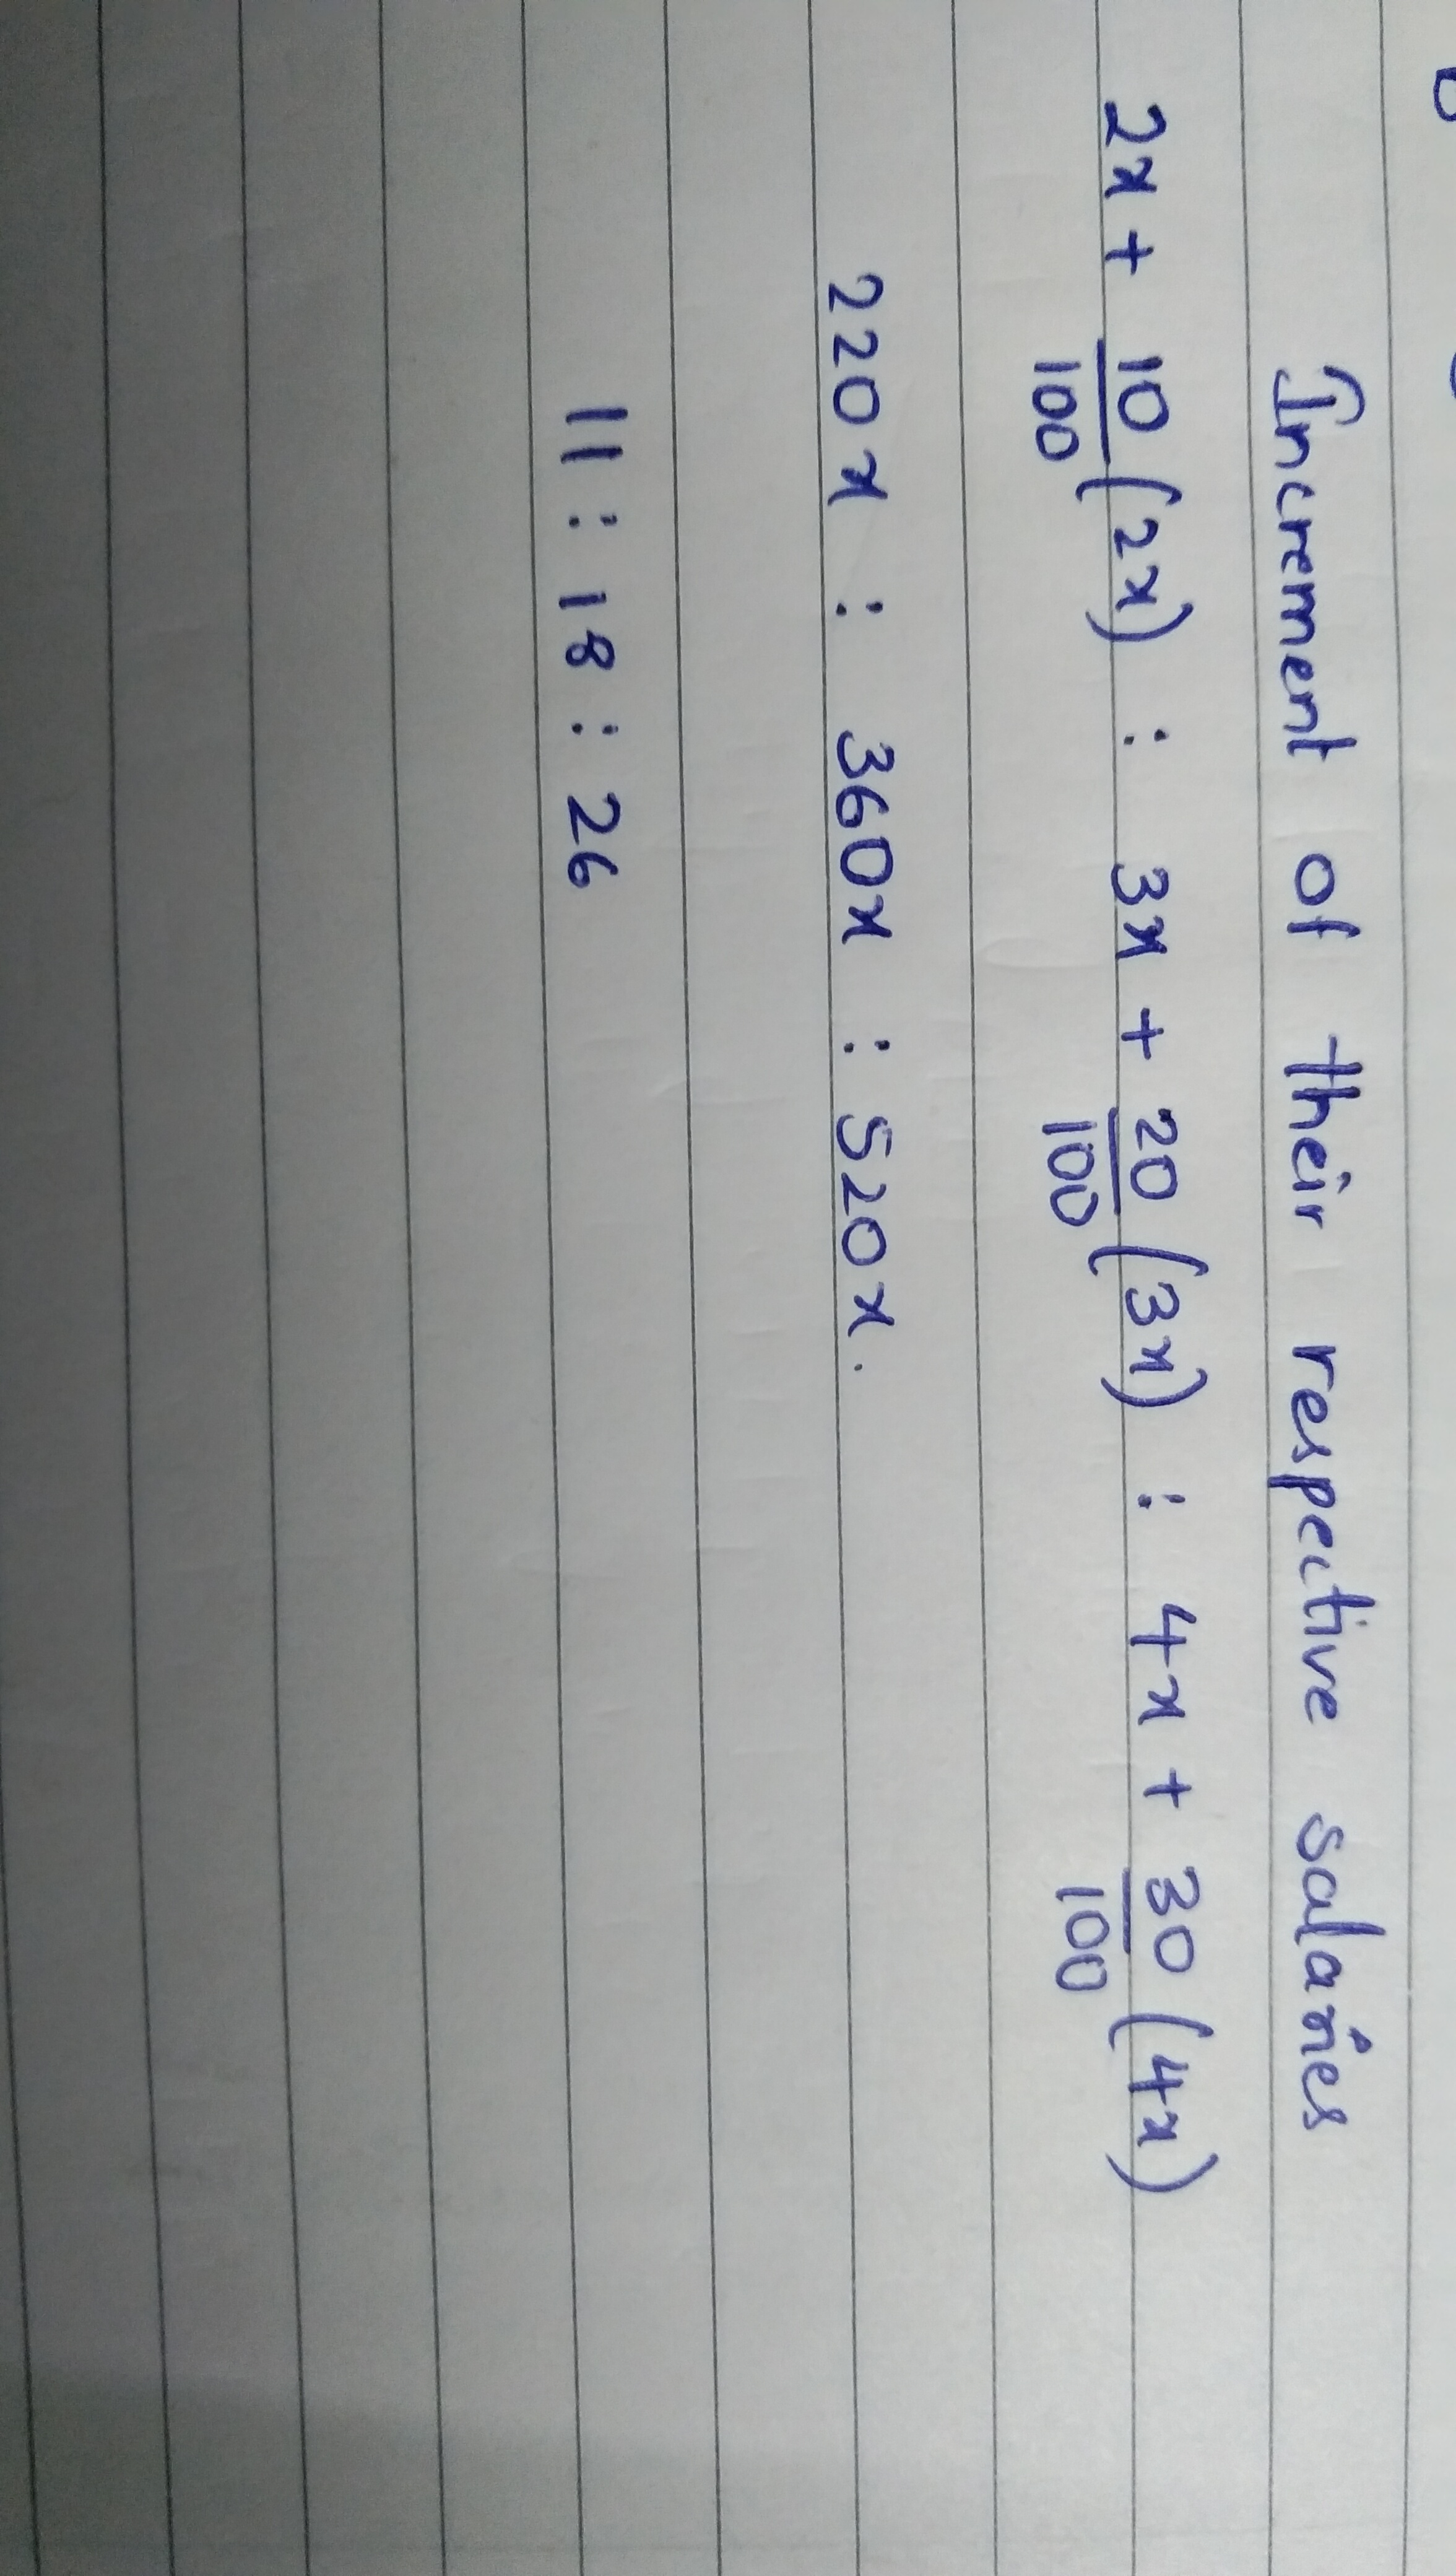 Increment of their respective salaries
2x + 10/100 (2x) : 3x + 20/100 (3x) : 4x + 30/100 (4x)
220x : 360x : 520x.
11 : 18 : 26